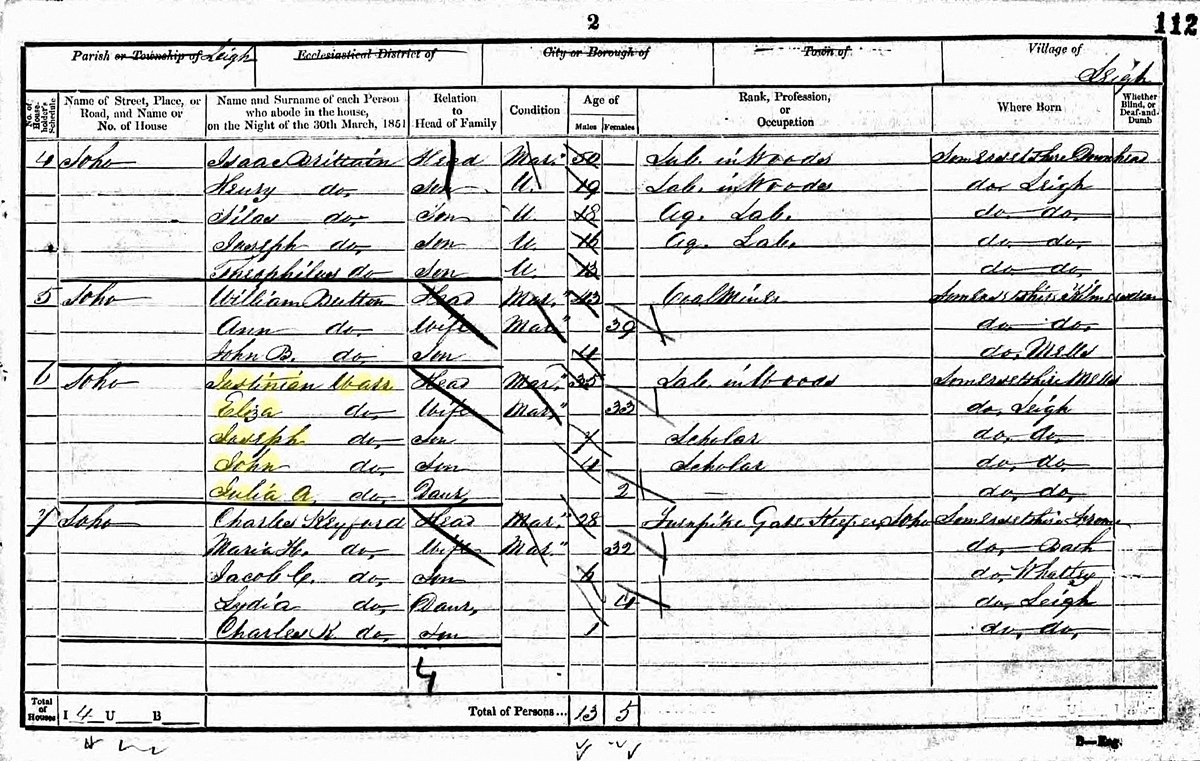 2
112
Parish or Township of Leigh Ecclesiastical District of City or Borough of Town of Village of Leigh
No. of Householder's Schedule Name of Street, Place, or Road, and Name or No. of House Name and Surname of each Person who abode in the house, on the Night of the 30th March, 1851 Relation to Head of Family Condition Age of Males Females Rank, Profession, or Occupation Where Born Whether Blind, or Deaf-and-Dumb
4 Soho Isaac Brittain Head Mar. 50 Lab. in Woods Somersetshire Downhead
Henry do, Son U. 19 Lab. in Woods do. Leigh
Silas do, Son U. 18 Ag. Lab. do do,
Joseph do, Son U. 16 Ag. Lab. do do,
Theophilus do Son U. 13 do do,
5 Soho William Button Head Mar. 43 Coal Miner Somersetshire Kilmersdon
Ann do, Wife Mar. 39 do do,
John B. do, Son 4 do, Mells
6 Soho Justinian Warr Head Mar. 35 Lab. in Woods Somersetshire Mells
Eliza do, Wife Mar. 33 do, Leigh
Joseph do, Son 7 Scholar do, do,
John do, Son 4 Scholar do, do,
Julia A. do, Daur, 2 do, do,
7 Soho Charles Keyford Head Mar. 28 Turnpike Gate Keeper, Soho Somersetshire Frome
Maria H. do, Wife Mar. 32 do, Bath
Jacob C. do, Son 6 do, Whatley
Lydia do, Daur, 4 do, Leigh
Charles K. do, Son 1 do, do,
Total of Houses I 4 U B Total of Persons... 13 5
B—Eng.